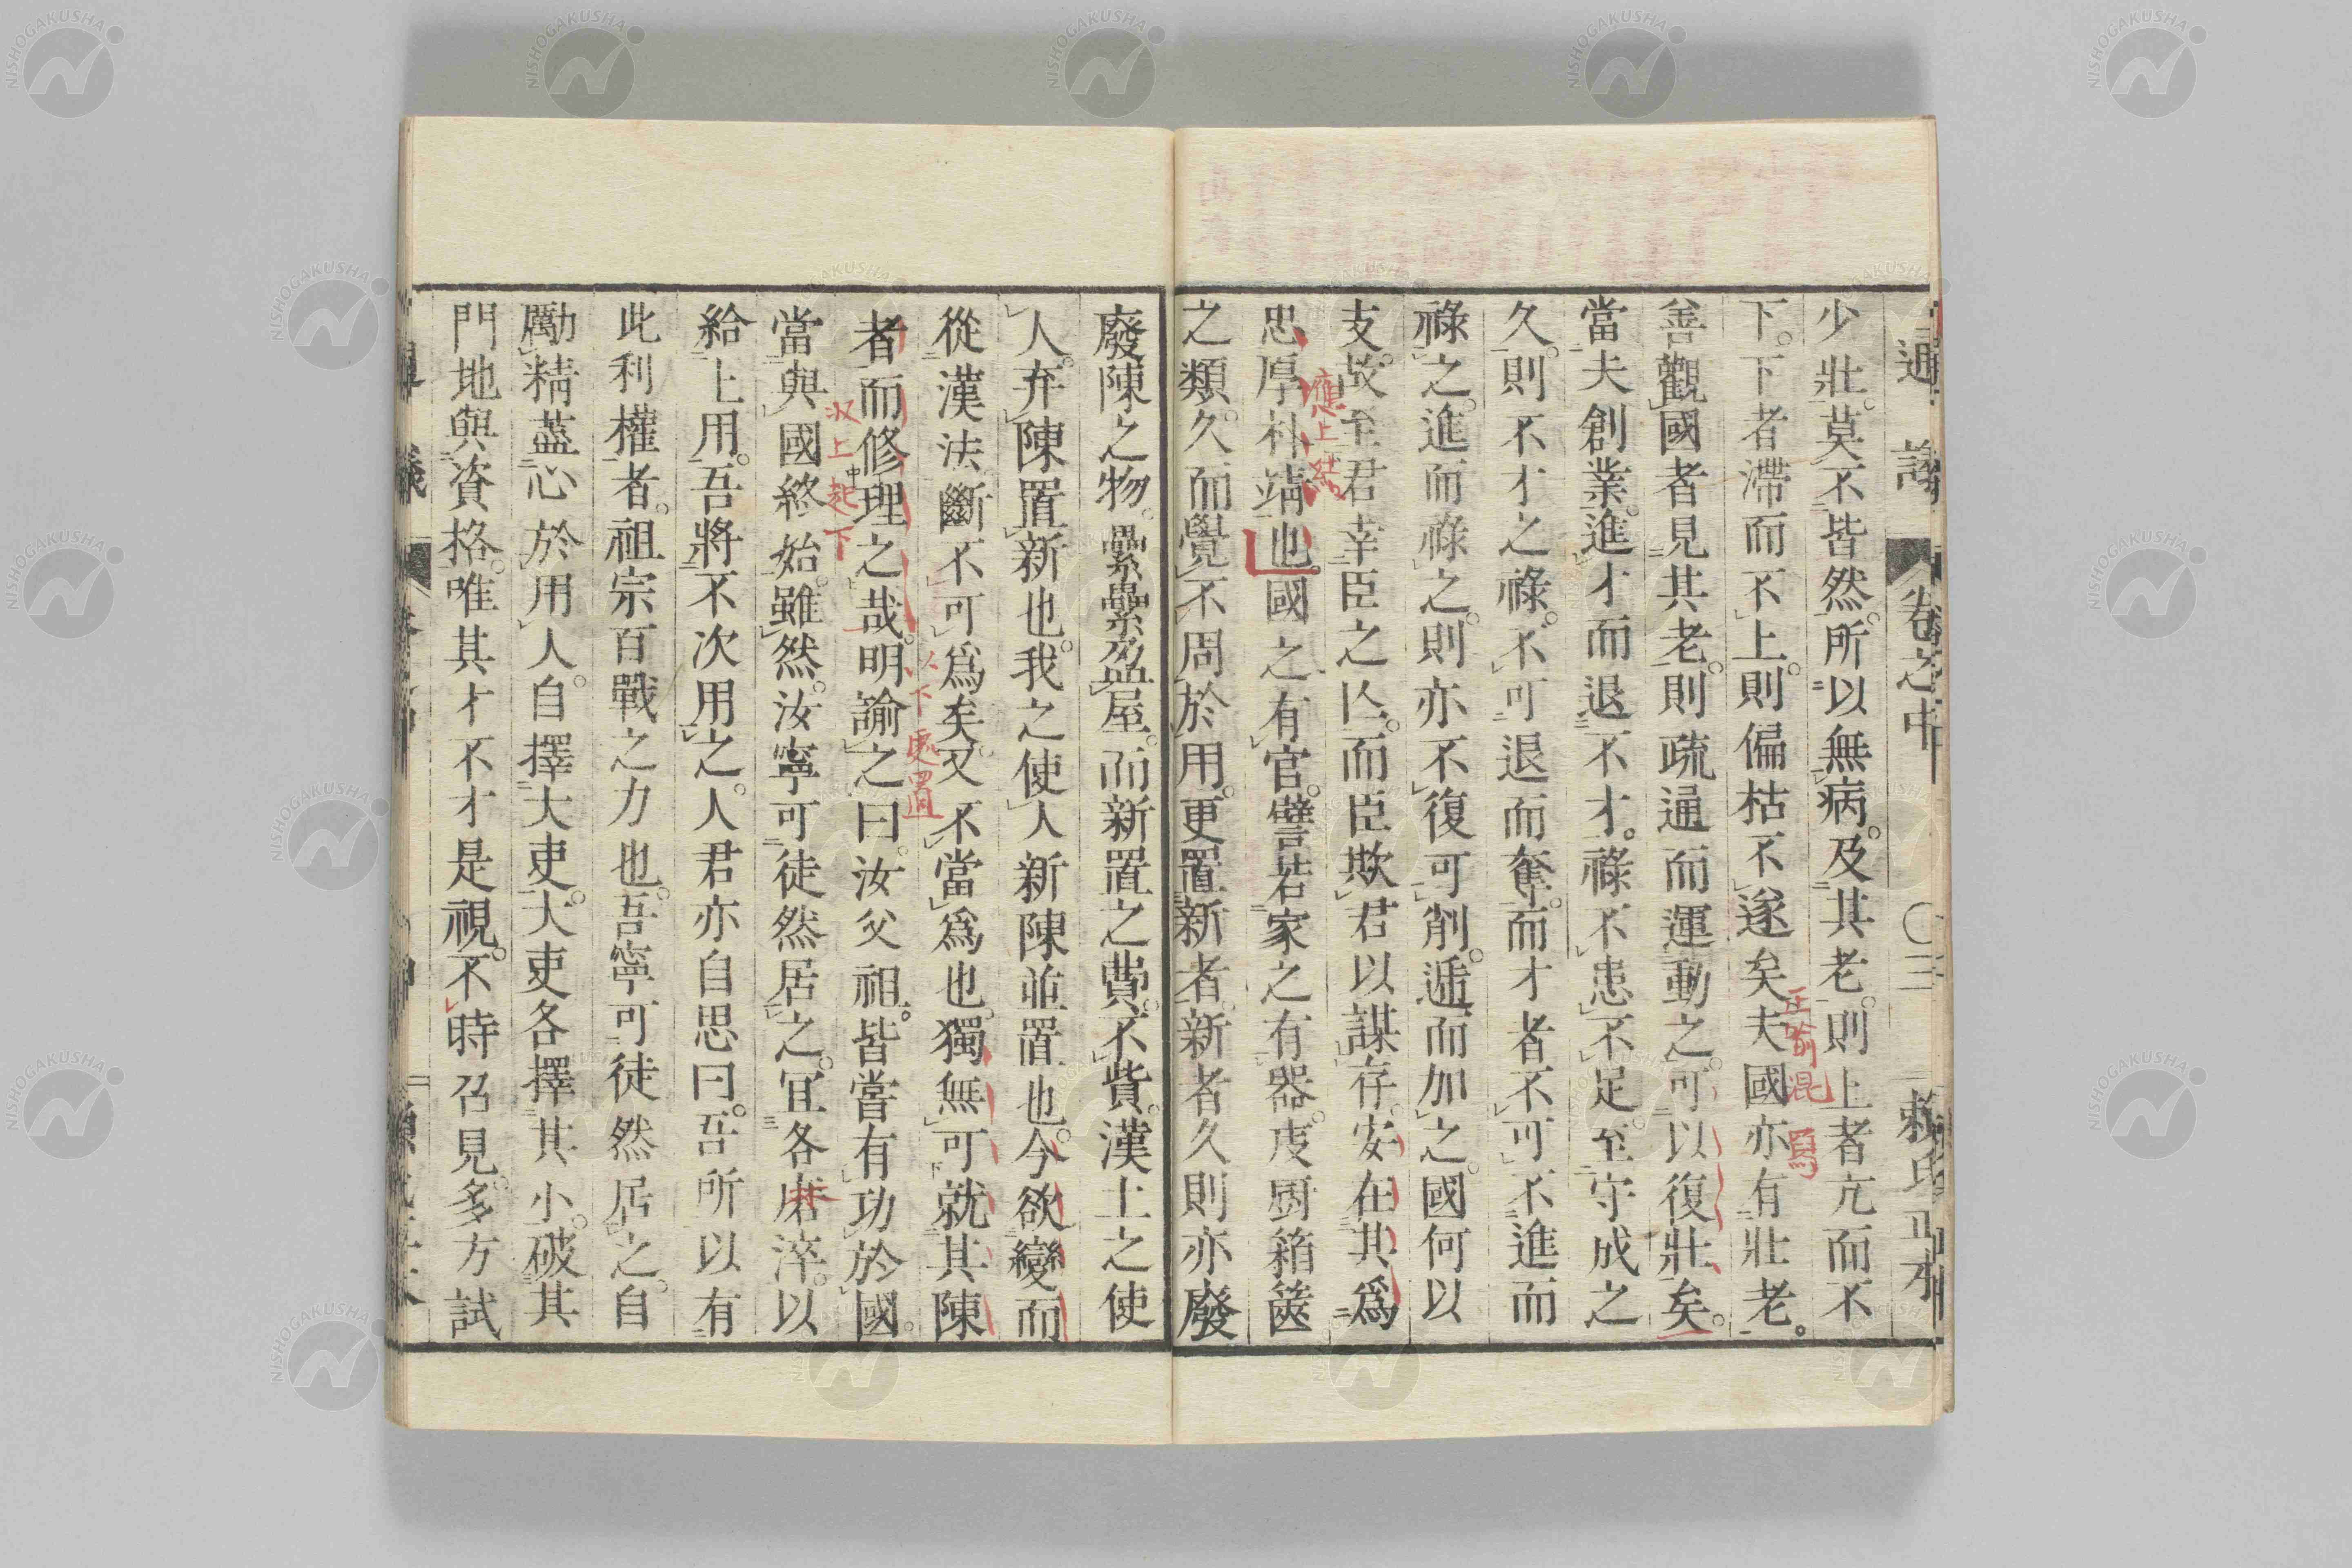 通議 卷之中 〇三 賴氏正本
少壯。莫不皆然。所以無病。及其老。則上者亢而不
下。下者滯而不上。則偏枯不遂矣夫國亦有壯老。
正喩混寫
善觀國者見其老。則疏通而運動之。可以復壯矣。
當夫創業。進才而退不才。祿不患不足。至守成之
久。則不才之祿。不可退而奪。而才者不可不進而
祿之。進而祿之。則亦不復可削。遞而加之。國何以
支。故至君幸臣之亾。而臣欺君以謀存。安在其爲
應上結
忠厚朴靖也。國之有官。譬若家之有器。庋廚箱篋
之類。久而覺不周於用。更置新者。新者久則亦廢
廢陳之物。纍纍盈屋。而新置之費。不貲。漢土之使
人。弃陳置新也。我之使人新陳並置也。今欲變而
從漢法斷不可爲矣。又不當爲也。獨無可就其陳
以下處置
者而修理之哉。明諭之曰。汝父祖。皆嘗有功於國。
以上起下
當與國終始。雖然。汝寧可徒然居之。宜各磨淬。以
給上用。吾將不次用之。人君亦自思曰。吾所以有
此利權者。祖宗百戰之力也。吾寧可徒然居之。自
勵精蓋心於用人。自擇大吏。大吏各擇其小。破其
門地與資格。唯其才不才是視。不時召見。多方試
NISHOGAKUSHA